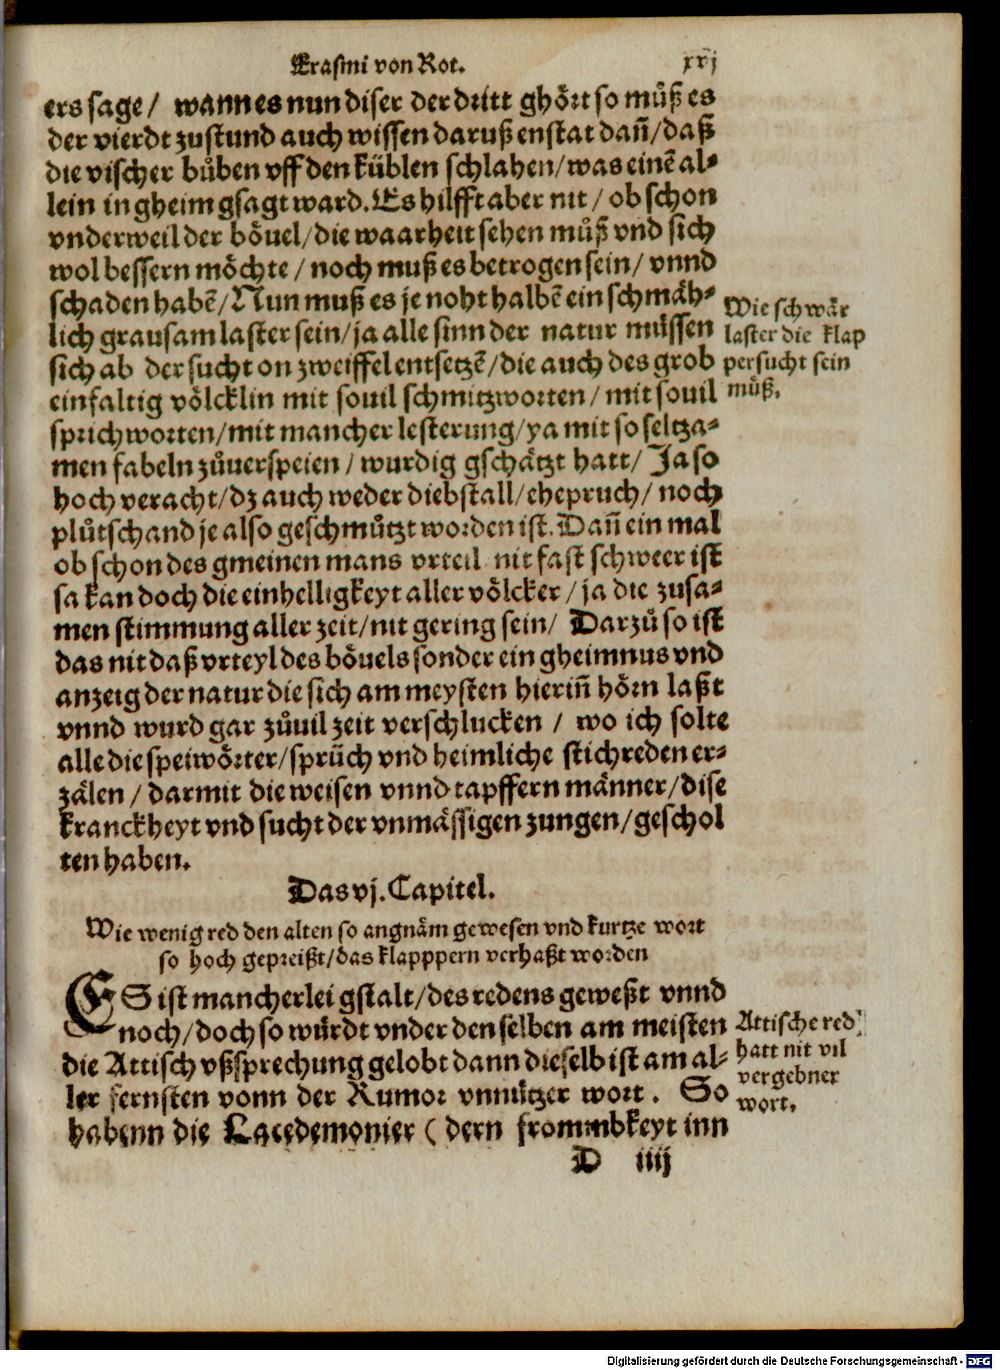 Erasmi von Rot.
xxj
ers sage / wann es nun diser der dritt ghört so můß es
der vierdt zustund auch wissen daruß enstat dañ / daß
die vischer bůben vff den küblen schlahen / was einē al-
lein in gheim gsagt ward. Es hilfft aber nit / ob schon
vnderweil der böuel / die waarheit sehen můß vnd sich
wol bessern möchte / noch muß es betrogen sein / vnnd
schaden habē / Nun muß es je noht halbē ein schmäh-
lich grausam laster sein / ja alle sinn der natur müssen
sich ab der sucht on zweiffel entsetzē / die auch des grob
einfaltig völcklin mit souil schmitzworten / mit souil
sprichworten / mit mancher lesterung / ya mit so seltza-
men fabeln zůuerspeien / wurdig gschätzt hatt / Ja so
hoch veracht / dz auch weder diebstall / ehepruch / noch
plůtschand je also geschmützt worden ist. Dañ ein mal
ob schon des gmeinen mans vrteil nit fast schweer ist
sa kan doch die einhelligkeyt aller völcker / ja die zusa-
men stimmung aller zeit / nit gering sein / Darzů so ist
das nit daß vrteyl des böuels sonder ein gheimnus vnd
anzeig der natur die sich am meysten hieriñ hörn laßt
vnnd wurd gar zůuil zeit verschlucken / wo ich solte
alle die speiwörter / sprüch vnd heimliche stichreden er-
zälen / darmit die weisen vnnd tapffern männer / dise
kranckheyt vnd sucht der vnmässigen zungen / geschol
ten haben.
Wie schwär
laster die klap
persucht sein
můß.
Das vj. Capitel.
Wie wenig red den alten so angnäm gewesen vnd kurtze wort
so hoch gepreißt / das klapppern verhaßt worden
ES ist mancherlei gstalt / des redens geweßt vnnd
noch / doch so würdt vnder den selben am meisten
die Attisch vßsprechung gelobt dann dieselb ist am al-
ler fernsten vonn der Rumor vnnützer wort. So
habenn die Lacedemonier ( dern frommbkeyt inn
Attische red
hatt nit vil
vergebner
wort.
D iiij
Digitalisierung gefördert durch die Deutsche Forschungsgemeinschaft - DFG